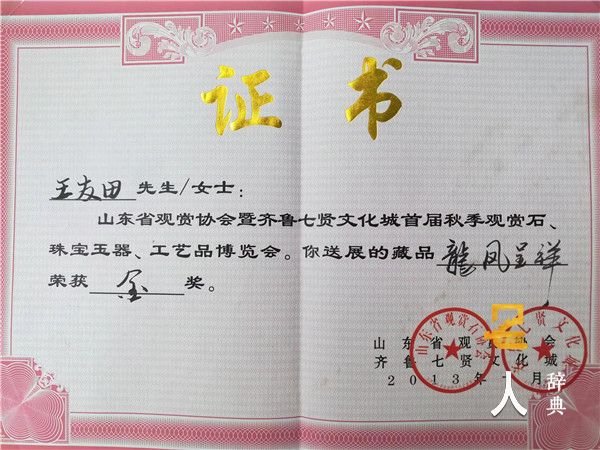 证书
王友田 先生/女士：
山东省观赏协会暨齐鲁七贤文化城首届秋季观赏石、
珠宝玉器、工艺品博览会。你送展的藏品 龍凤呈祥
荣获 金 奖。
山东省观赏石协会
齐鲁七贤文化城
2013年 月
人 辞典